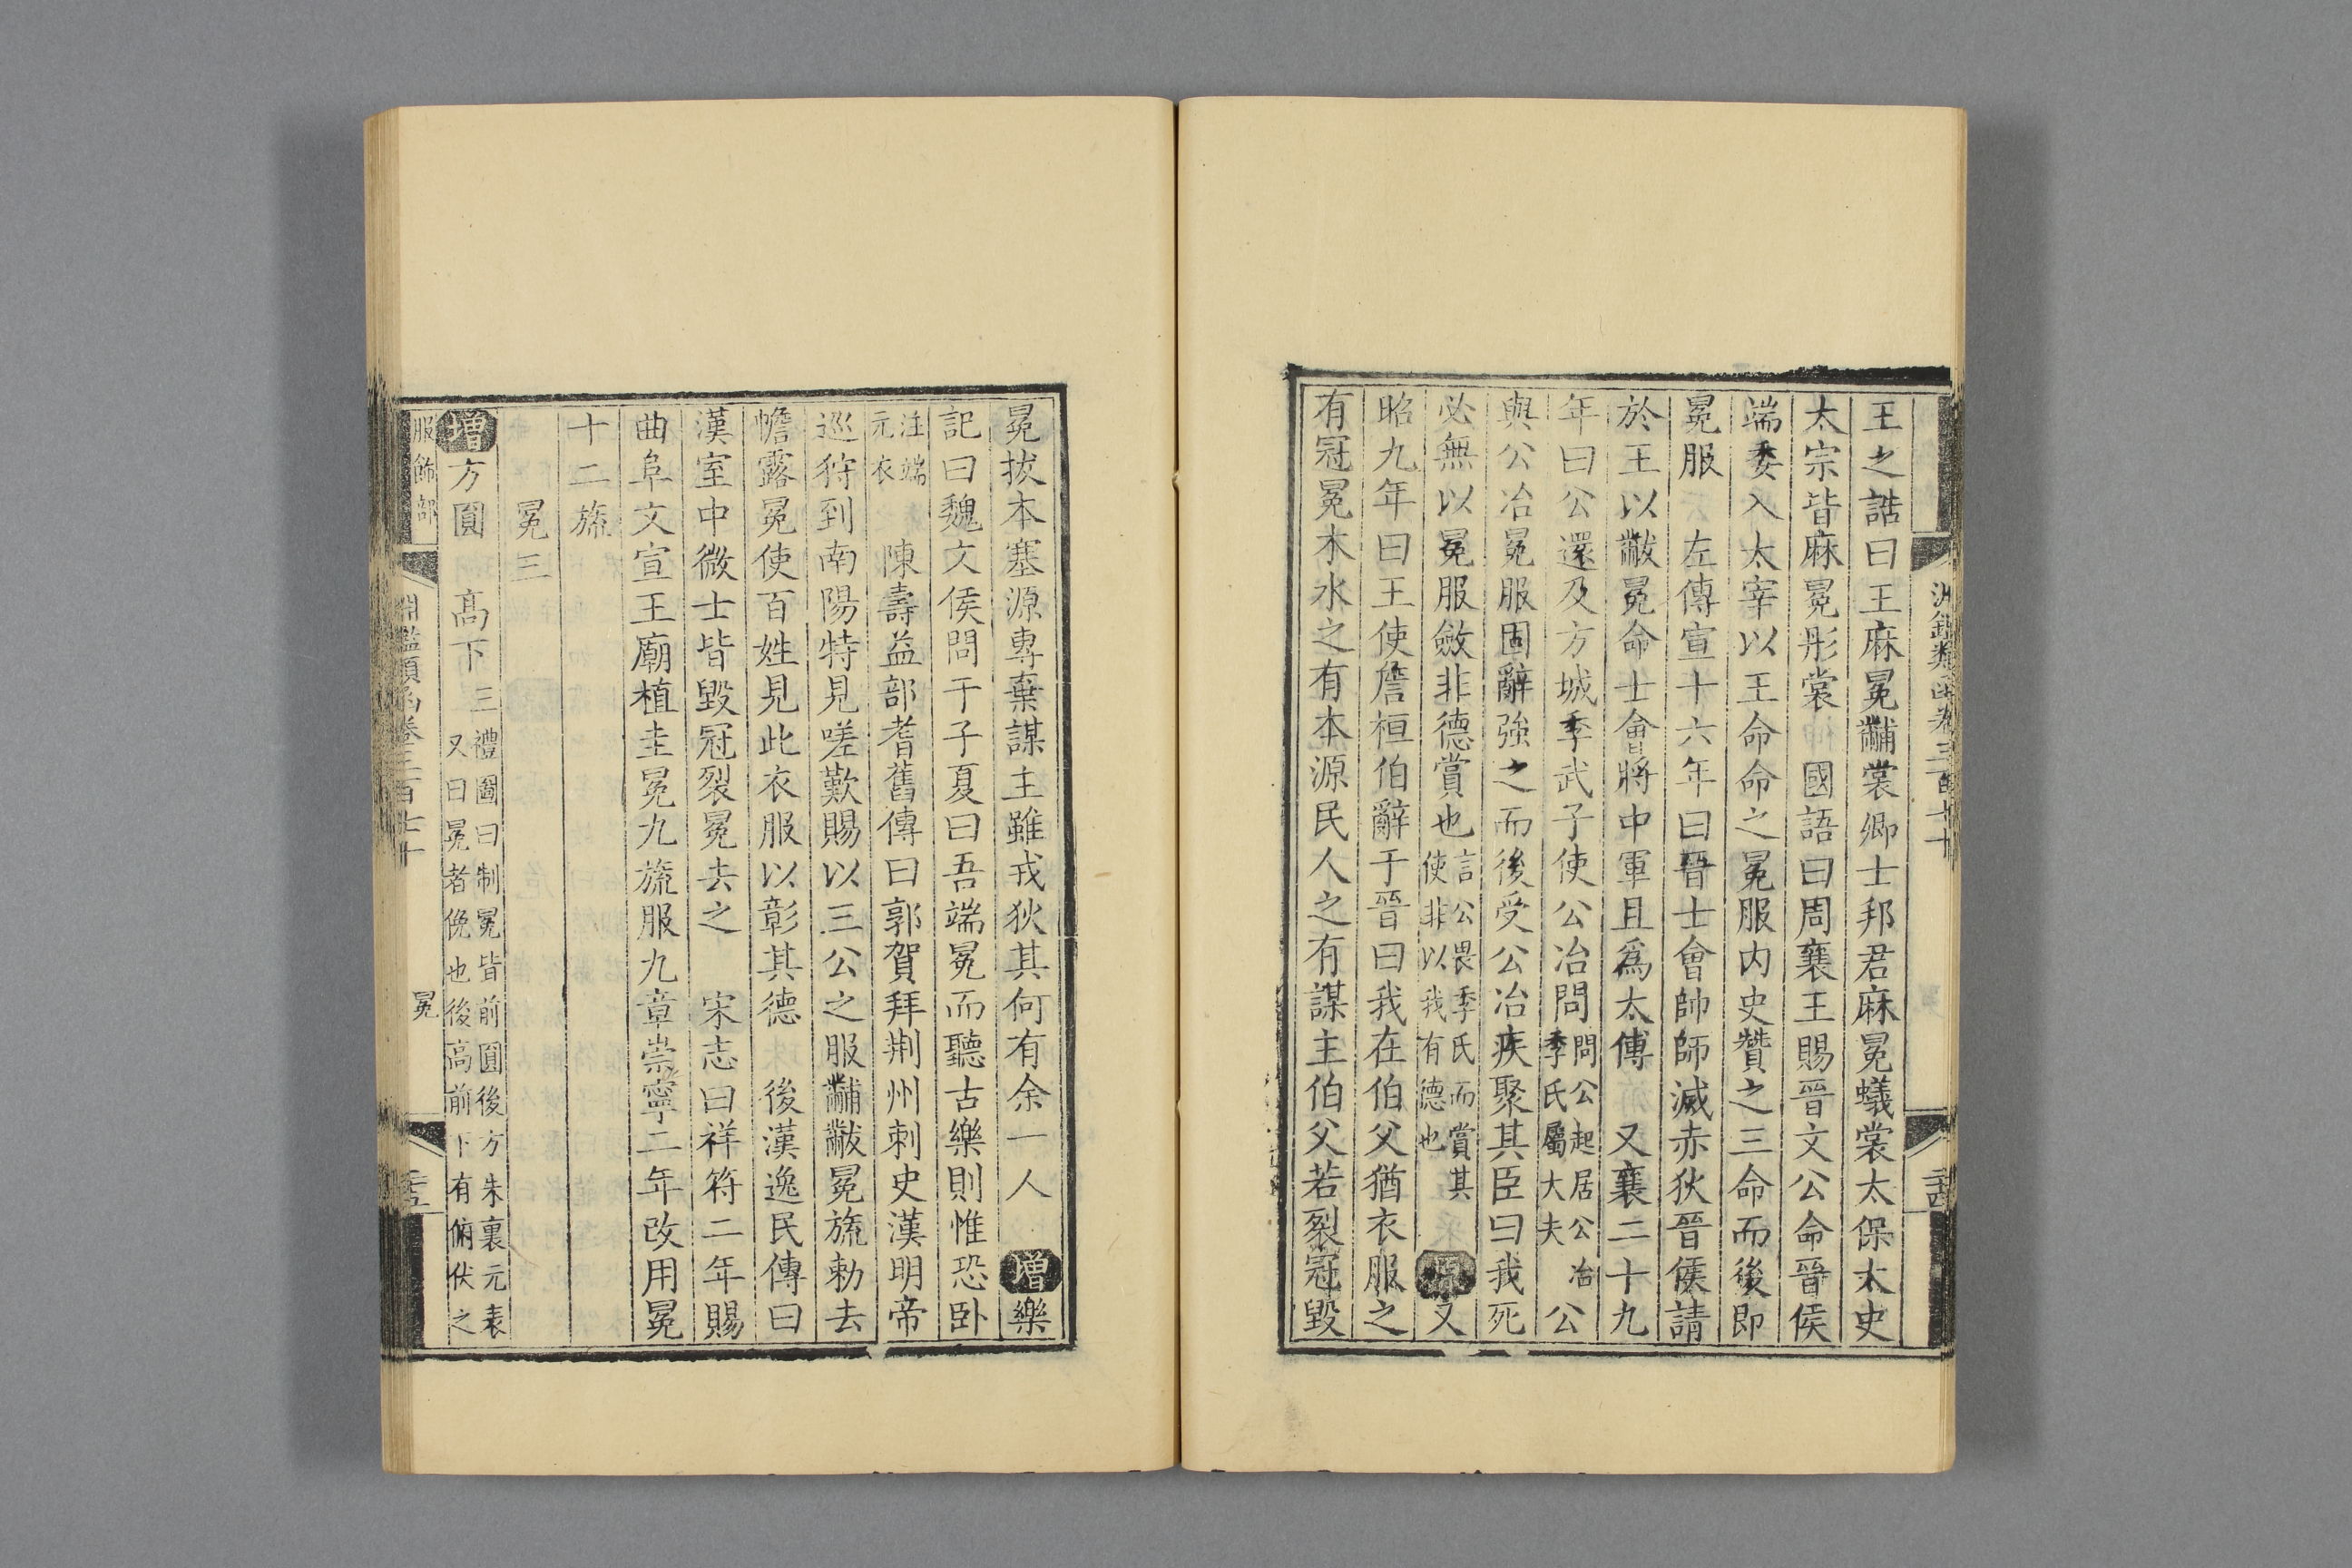 王之誥曰王麻冕黼裳卿士邦君麻冕蟻裳太保太史
太宗皆麻冕彤裳 國語曰周襄王賜晉文公命晉侯
端委入太宰以王命命之冕服内史贊之三命而後即
冕服 左傳宣十六年曰晉士會帥師滅赤狄晉侯請
於王以黻冕命士會將中軍且爲太傅 又襄二十九
年曰公還及方城季武子使公冶問問公起居公冶季氏屬大夫公
與公冶冕服固辭強之而後受公冶疾聚其臣曰我死
必無以冕服斂非德賞也言公畏季氏而賞其使非以我有德也 原又
昭九年曰王使詹桓伯辭于晉曰我在伯父猶衣服之
有冠冕木水之有本源民人之有謀主伯父若裂冠毀
冕拔本塞源專棄謀主雖戎狄其何有余一人 增樂
記曰魏文侯問于子夏曰吾端冕而聽古樂則惟恐卧
注端元衣 陳壽益部耆舊傳曰郭賀拜荆州刺史漢明帝
巡狩到南陽特見嗟歎賜以三公之服黼黻冕旒勅去
幨露冕使百姓見此衣服以彰其德 後漢逸民傳曰
漢室中微士皆毀冠裂冕去之 宋志曰祥符二年賜
曲阜文宣王廟植圭冕九旒服九章崇寧二年改用冕
十二旒
冕三
增方圓 高下三禮圖曰制冕皆前圓後方朱裏元表又曰冕者俛也後高前下有俯伏之
服飾部
淵鑑類函卷三百七十
冕